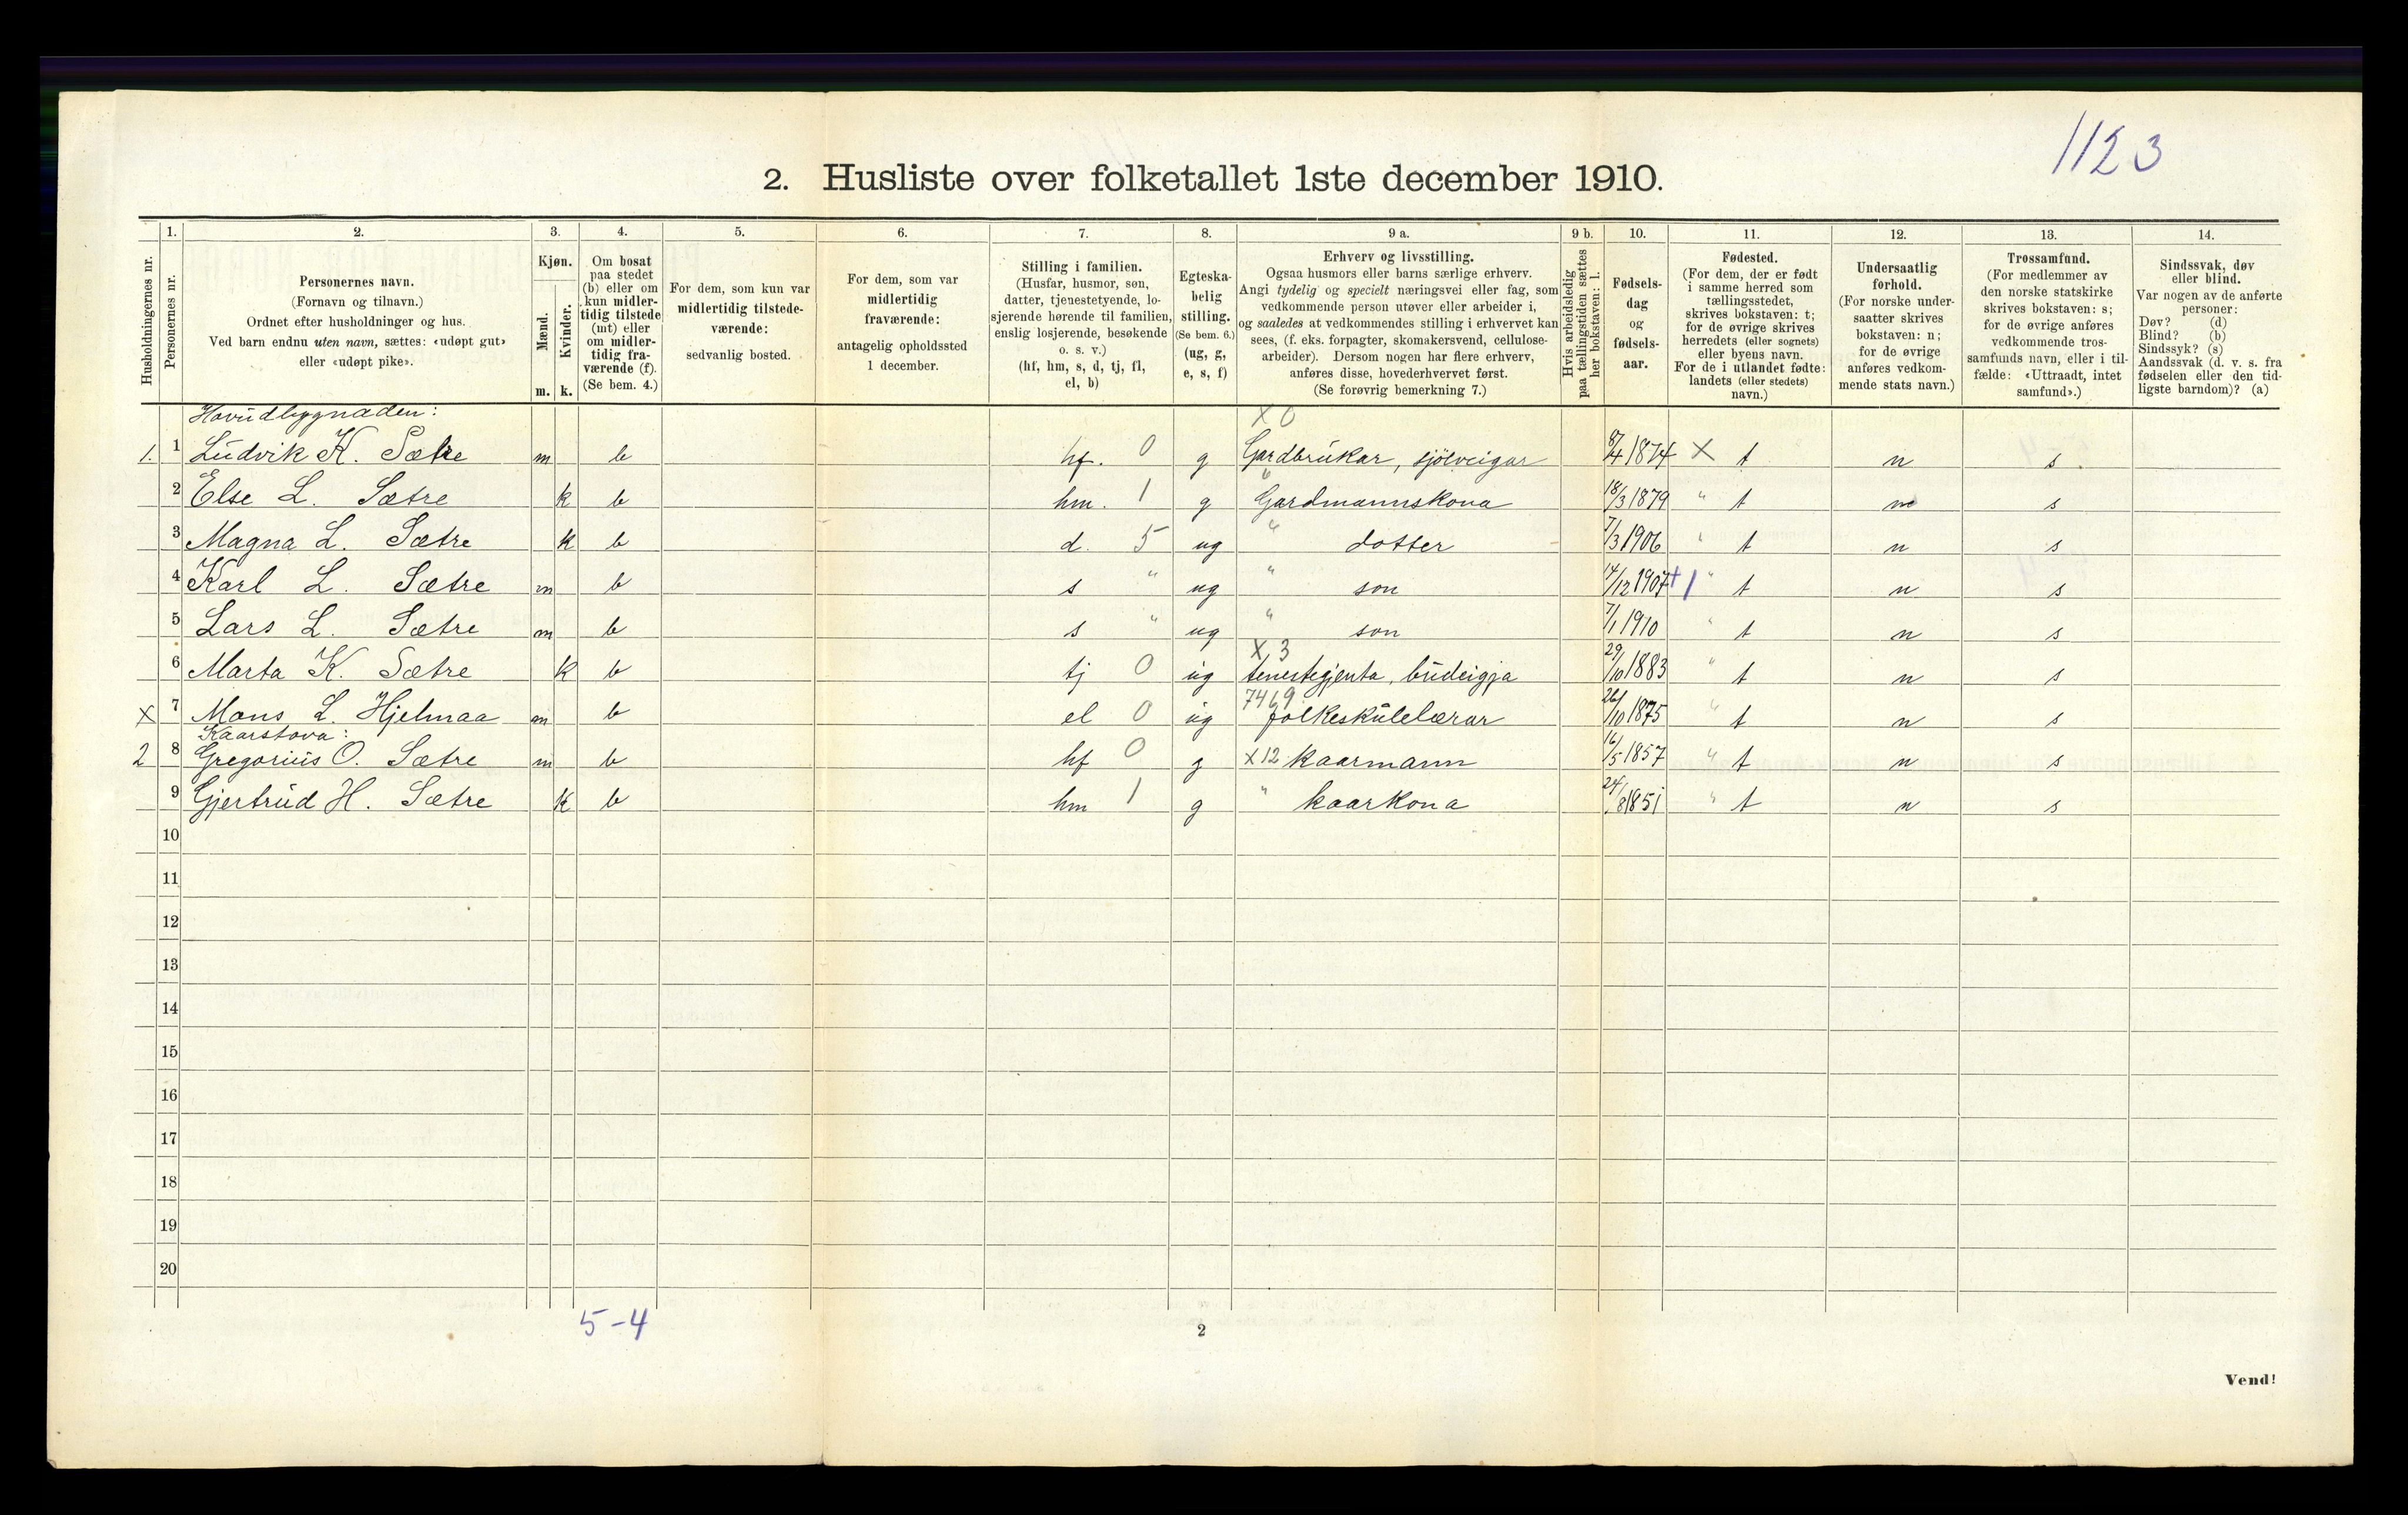 1123
2. Husliste over folketallet 1ste december 1910.
1. 2. 3. 4. 5. 6. 7. 8. 9 a. 9 b. 10. 11. 12. 13. 14.
Husholdningernes nr.
Personernes nr.
Personernes navn.
(Fornavn og tilnavn.)
Ordnet efter husholdninger og hus.
Ved barn endnu uten navn, sættes: «udøpt gut»
eller «udøpt pike».
Kjøn.
Mænd.
Kvinder.
m. k.
Om bosat
paa stedet
(b) eller om
kun midler-
tidig tilstede
(mt) eller
om midler-
tidig fra-
værende (f).
(Se bem. 4.)
For dem, som kun var
midlertidig tilstede-
værende:
sedvanlig bosted.
For dem, som var
midlertidig
fraværende:
antagelig opholdssted
1 december.
Stilling i familien.
(Husfar, husmor, søn,
datter, tjenestetyende, lo-
sjerende hørende til familien,
enslig losjerende, besøkende
o. s. v.)
(hf, hm, s, d, tj, fl,
el, b)
Egteska-
belig
stilling.
(Se bem. 6.)
(ug, g,
e, s, f)
Erhverv og livsstilling.
Ogsaa husmors eller barns særlige erhverv.
Angi tydelig og specielt næringsvei eller fag, som
vedkommende person utøver eller arbeider i,
og saaledes at vedkommendes stilling i erhvervet kan
sees, (f. eks. forpagter, skomakersvend, cellulose-
arbeider). Dersom nogen har flere erhverv,
anføres disse, hovederhvervet først.
(Se forøvrig bemerkning 7.)
Hvis arbeidsledig
paa tællingstiden sættes
her bokstaven: l.
Fødsels-
dag
og
fødsels-
aar.
Fødested.
(For dem, der er født
i samme herred som
tællingsstedet,
skrives bokstaven: t;
for de øvrige skrives
herredets (eller sognets)
eller byens navn.
For de i utlandet fødte:
landets (eller stedets)
navn.)
Undersaatlig
forhold.
(For norske under-
saatter skrives
bokstaven: n;
for de øvrige
anføres vedkom-
mende stats navn.)
Trossamfund.
(For medlemmer av
den norske statskirke
skrives bokstaven: s;
for de øvrige anføres
vedkommende tros-
samfunds navn, eller i til-
fælde: «Uttraadt, intet
samfund».)
Sindssvak, døv
eller blind.
Var nogen av de anførte
personer:
Døv? (d)
Blind? (b)
Sindssyk? (s)
Aandssvak (d. v. s. fra
fødselen eller den tid-
ligste barndom)? (a)
Hovudbygnaden: X 0
1. 1 Ludvik K. Sætre m b hf. 0 g Gardbrukar, sjölveigar 8/4 1874 X t n s
2 Else L. Sætre k b hm. 1 g " Gardmannskona 18/3 1879 " t n s
3 Magna L. Sætre k b d. 5 ug " dotter 7/3 1906 " t n s
4 Karl L. Sætre m b s " ug " son 14/12 1907 + 1 " t n s
5 Lars L. Sætre m b s " ug " son 7/1 1910 " t n s
X 3
6 Marta K. Sætre k b tj 0 ug tenestegjenta, budeigja 29/10 1883 " t n s
7469
X 7 Mons L. Hjelmaa m b el 0 ug folkeskulelærar 26/10 1875 " t n s
Kaarstova:
2 8 Gregorius O. Sætre m b hf 0 g X 12 kaarmann 16/5 1857 " t n s
9 Gjertrud H. Sætre k b hm 1 g " kaarkona 24/8 1851 " t n s
10
11
12
13
14
15
16
17
18
19
20
5-4
2
Vend!